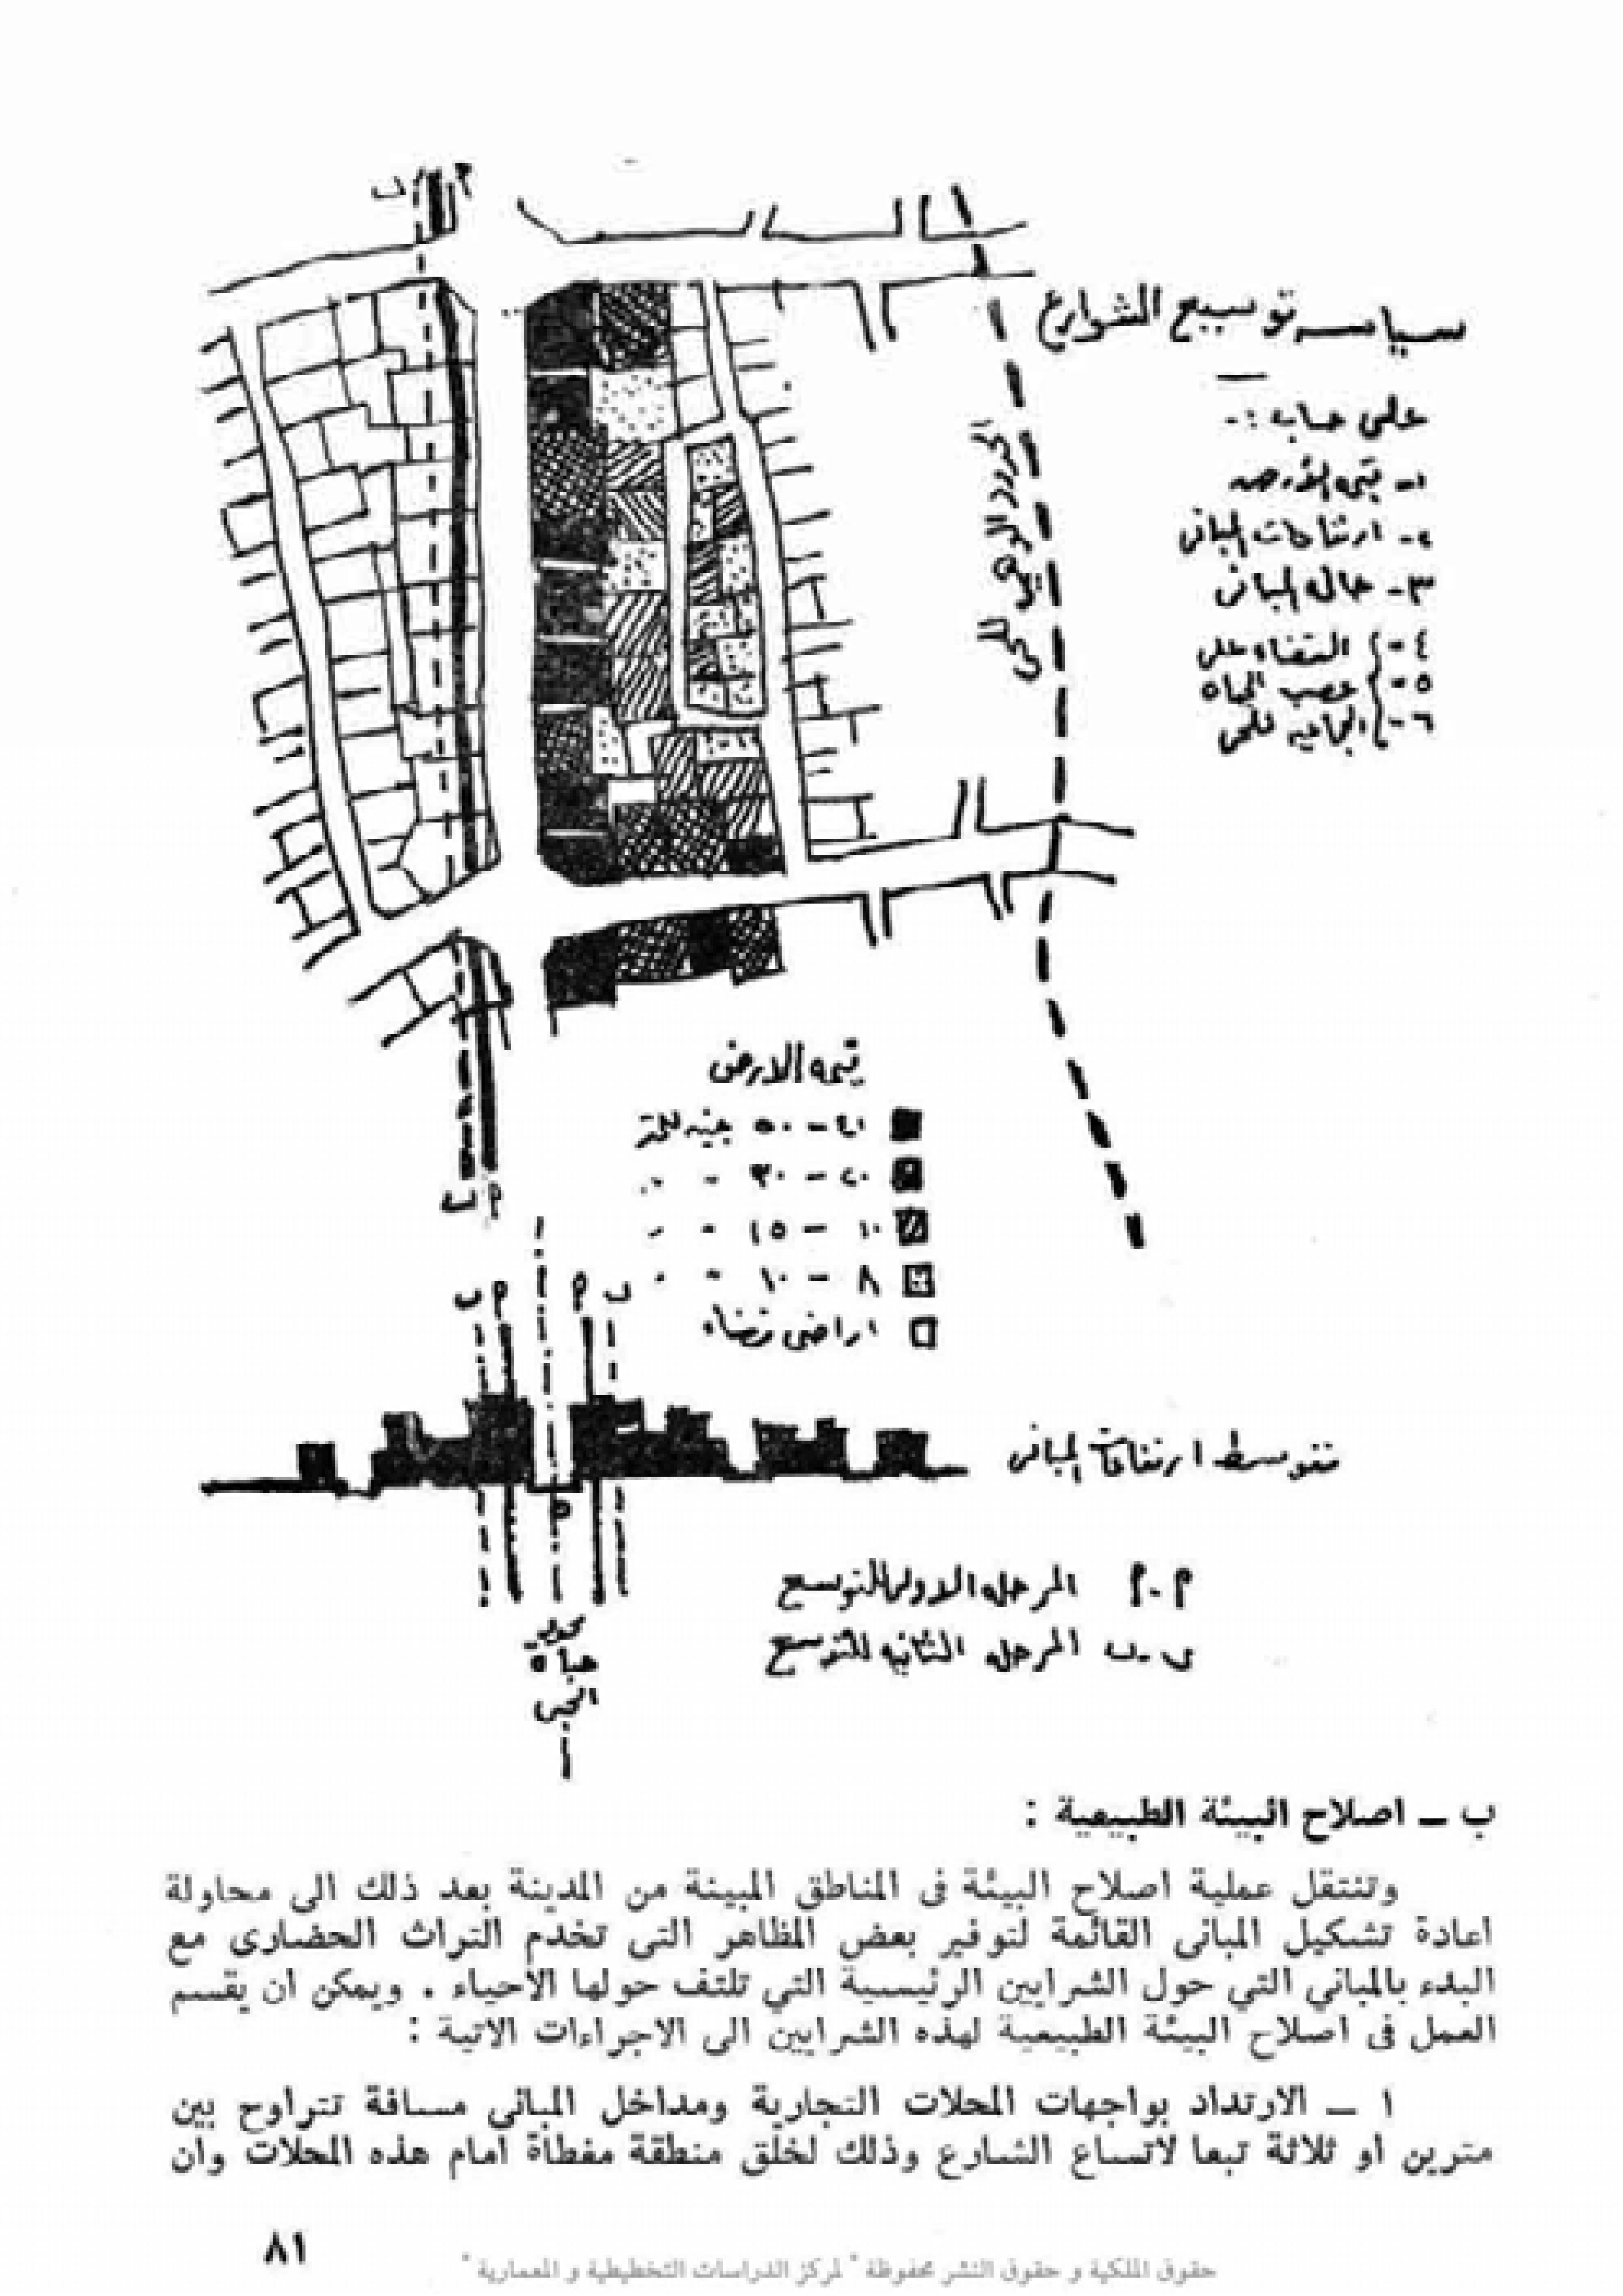 سياسة توسيع الشوارع
على حساب :-
١- قيمة الأرض
٢- ارتفاعات المبانى
٣- حالة المبانى
٤- القضاء على
٥- عصب الحياة
٦- الجماعية للحى
الحدود الوهمية للحى
قيمة الارض
٤١ - ٥٠ جنيه للمتر
٢٠ - ٣٠ " "
١٠ - ١٥ " "
٨ - ١٠ " "
اراضى فضاء
متوسط ارتفاعات المبانى
م - م المرحلة الاولى للتوسع
ب - ب المرحلة الثانية للتوسع
محور
حياة
الحى
ب ــ اصلاح البيئة الطبيعية :
وتنتقل عملية اصلاح البيئة فى المناطق المبينة من المدينة بعد ذلك الى محاولة
اعادة تشكيل المبانى القائمة لتوفير بعض المظاهر التى تخدم التراث الحضارى مع
البدء بالمباني التي حول الشرايين الرئيسية التي تلتف حولها الأحياء . ويمكن ان يقسم
العمل فى اصلاح البيئة الطبيعية لهذه الشرايين الى الاجراءات الاتية :
١ ــ الارتداد بواجهات المحلات التجارية ومداخل المبانى مسافة تتراوح بين
مترين او ثلاثة تبعا لاتساع الشارع وذلك لخلق منطقة مغطاة امام هذه المحلات وان
٨١
حقوق الملكية و حقوق النشر محفوظة " لمركز الدراسات التخطيطية و المعمارية "